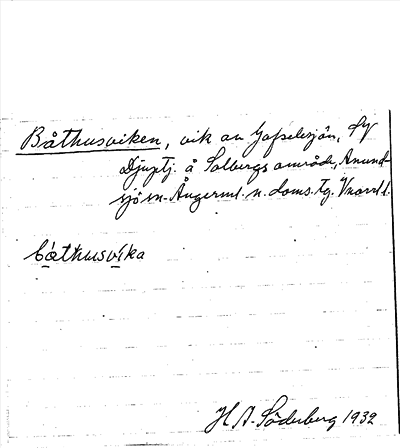 Båthusviken, vik av Gafselesjön, SV
Djuptj. å Solbergs område, Anund-
sjö sn. Ångerml. n. doms. tg. Vnorrl l.
båthusvíka
H A. Söderberg 1932